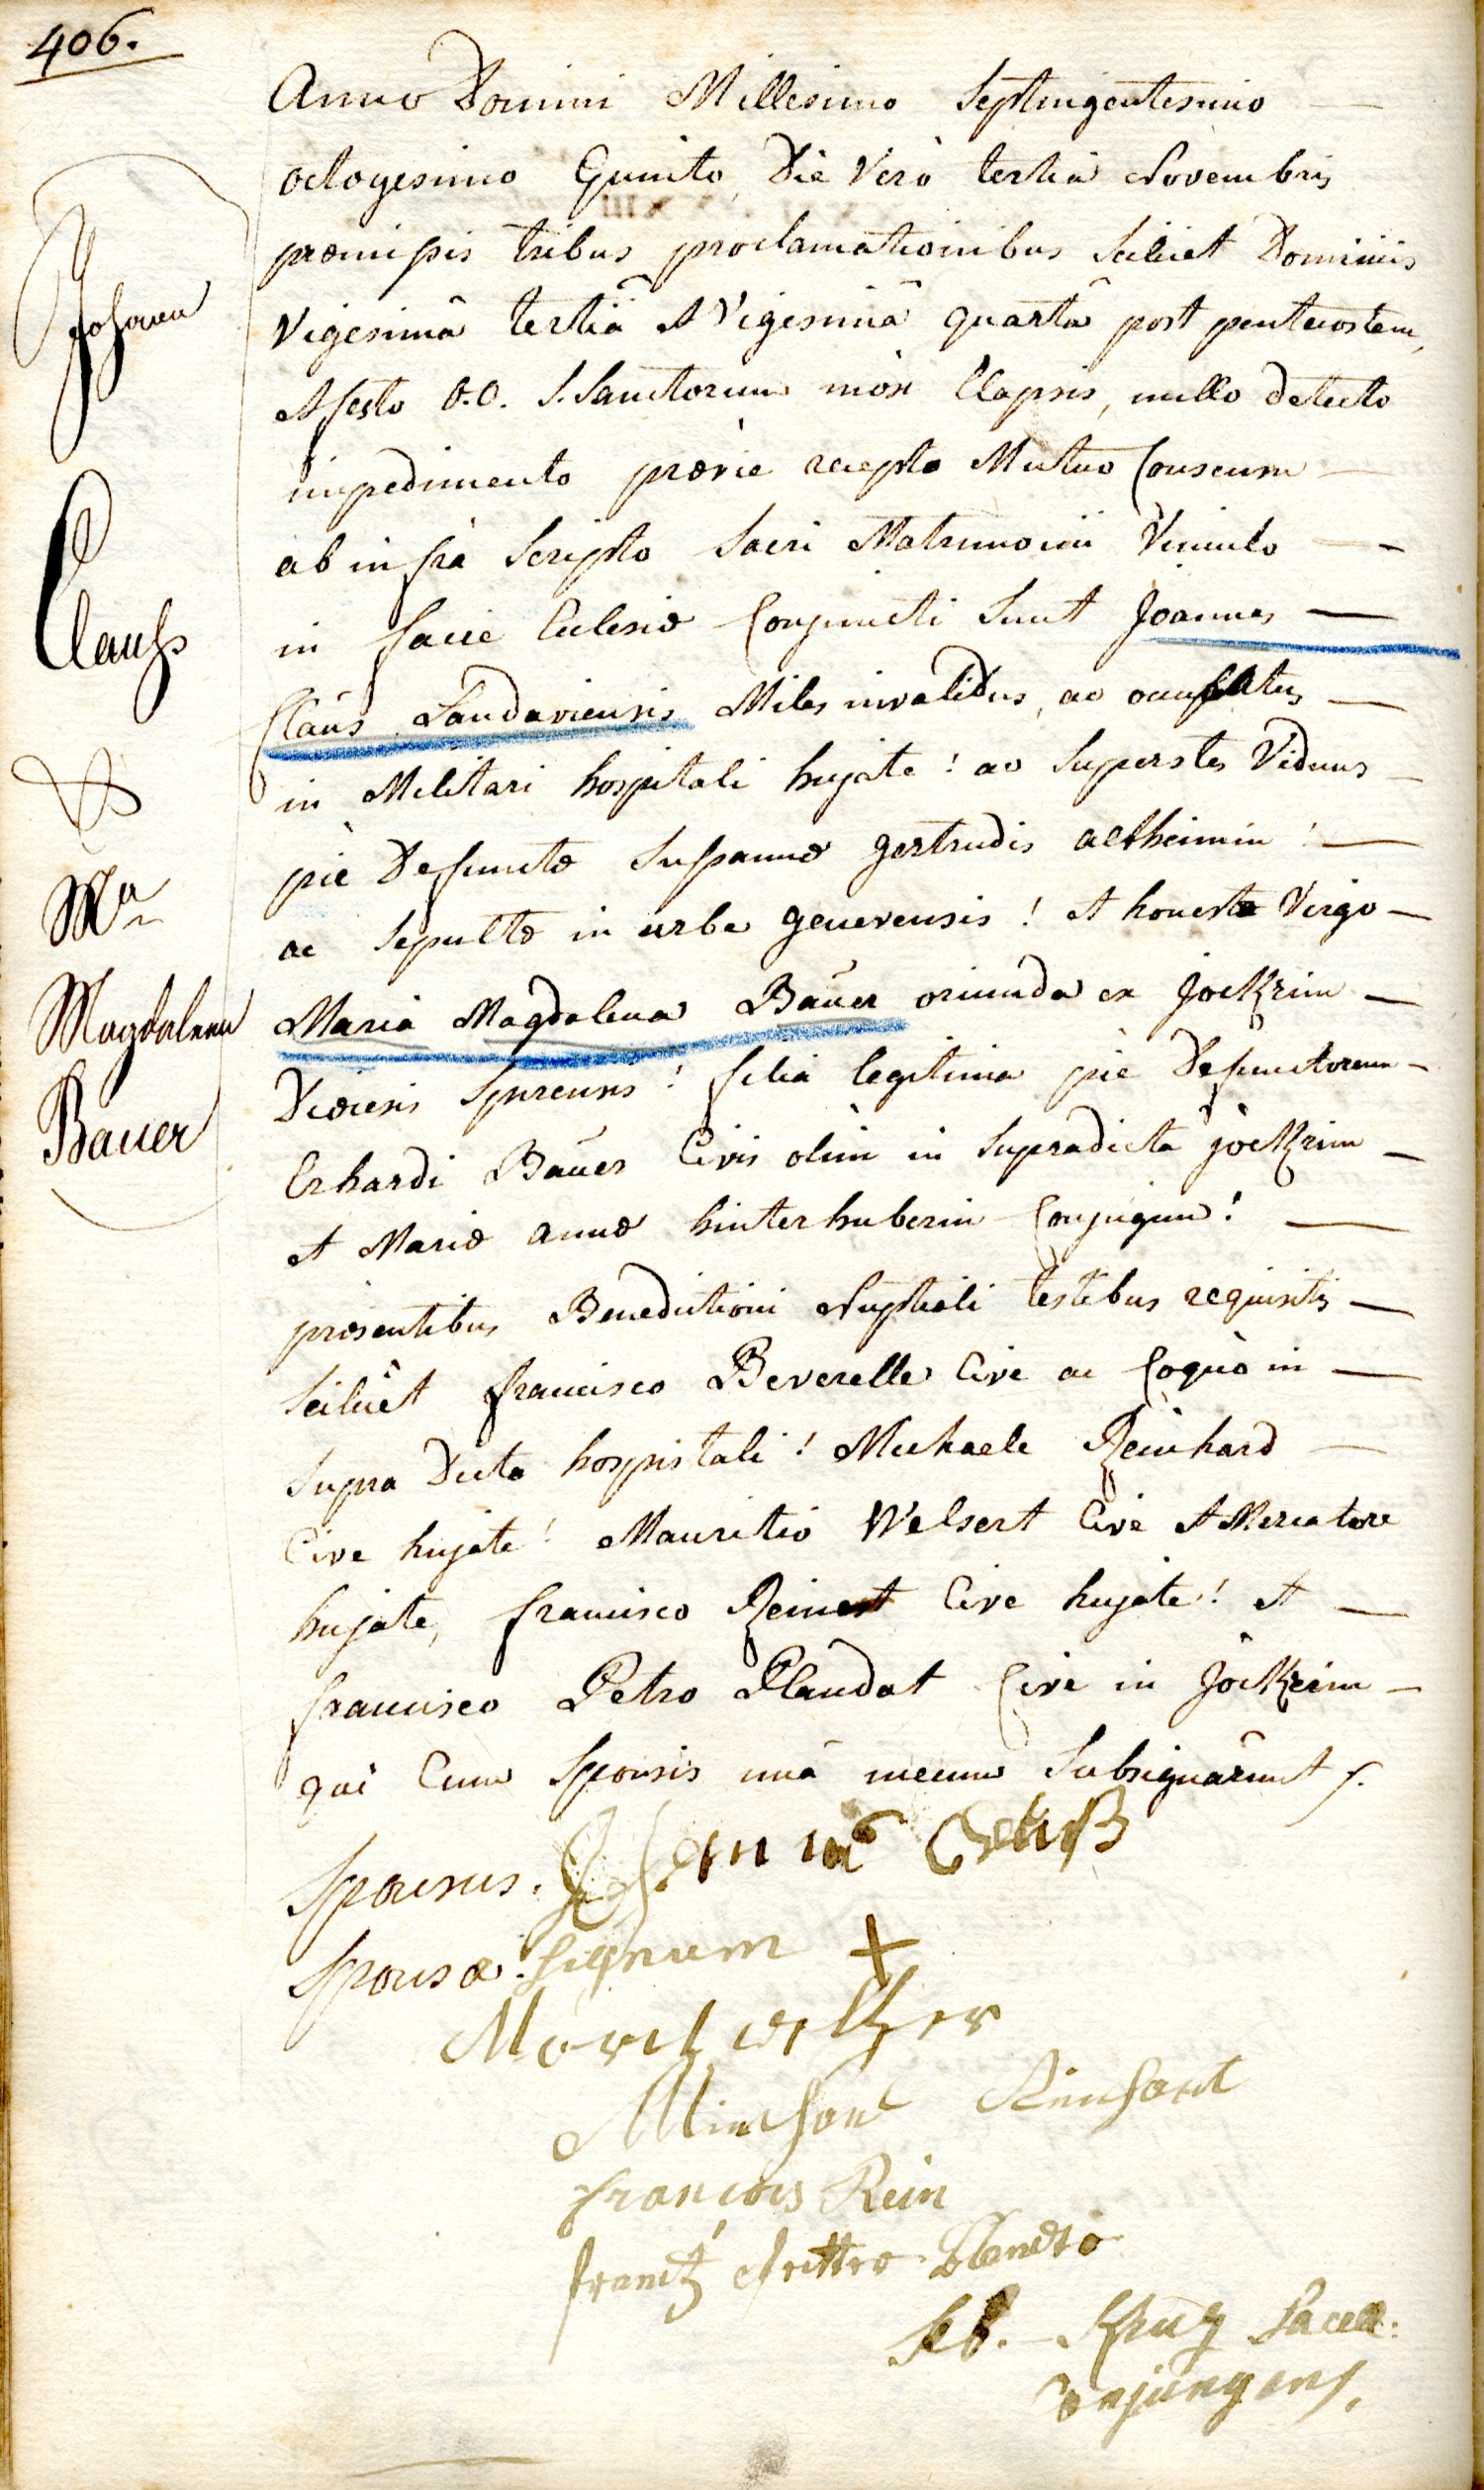 406.
Johann
Clauß
&
Ma
Magdalena
Bauer
Anno Domini Millesimo Septingentesimo
octogesimo Quinto, Die Verò tertiâ Novembris
præmissis tribus proclamationibus Scilicet Dominicis
Vigesimâ tertiâ et Vigesimâ quartâ post pentecostem,
et festo O.O. S. Sanctorum mox Elapsis, nullo detecto
impedimento prævie recepto Mutuo Consensu
ab infrà Scripto Sacri Matrimonii Vinculo
in facie Ecclesiæ Conjuncti Sunt Joannes
Claus Landaviensis Miles invalidus, ac
in Militari hospitali hujate! ac Superstes Viduus
piè Defunctæ Susannæ gertrudis altheimin!
ac Sepultæ in urbe genevensis! et honesta Virgo
Maria Magdalena Baúer oriunda ex Jockrim
Diœcesis Spirensis! filia legitima piè Defunctorum
Erhardi Baúer Civis olim in Supradicta jockrim
et Mariæ annæ hinterhuberin Conjugum!
præsentibus Benedictioni Nuptiali testibus requisitis
Scilicèt francisco Beverelle Cive ac Coquò in
Supra Dicto hospitali! Michaele Reinhard
Cive hujate! Mauritio Welsert Cive et Mercatore
hujate, francisco Reinert Cive hujate! et
francisco Petro Plandat Cive in Jockrim
qui Cum Sponsis unâ mecum Subsignârunt s.
Sponsus. Johannes Clauß
Sponsa. Signum +
Moritz welker
Reinhart
francois Rein
frantz
Seb. Krug Sacell:
Conjungens.